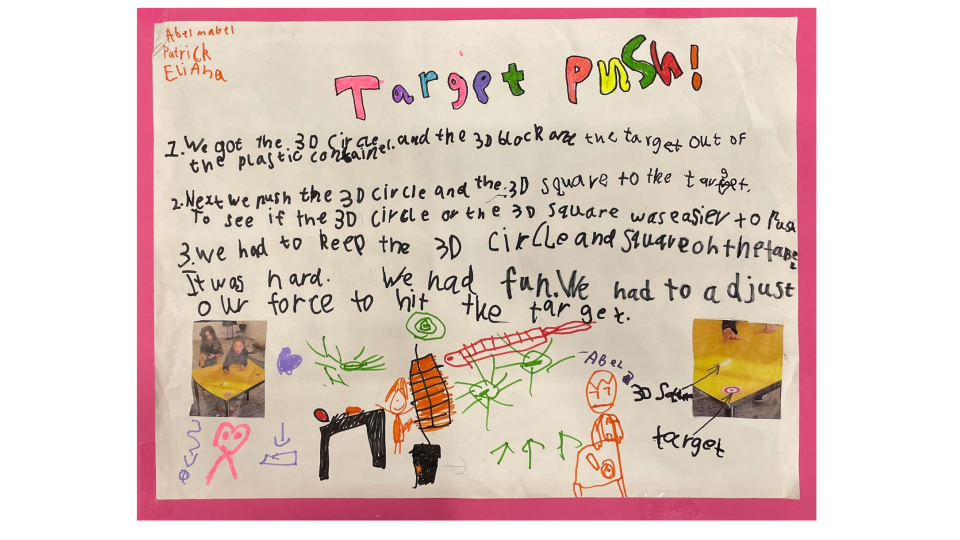 Abel mabel
Patrick
EliAna
Target Push!
1. We got the 3D Circle. and the 3D block and the target out of
the plastic container.
2. Next we push the 3D circle and the 3D square to the target.
To see if the 3D circle or the 3D square was easier to Push
3. we had to keep the 3D circle and square on the table.
It was hard. We had fun. We had to adjust
our force to hit the target.
ABEL
3D Square
target